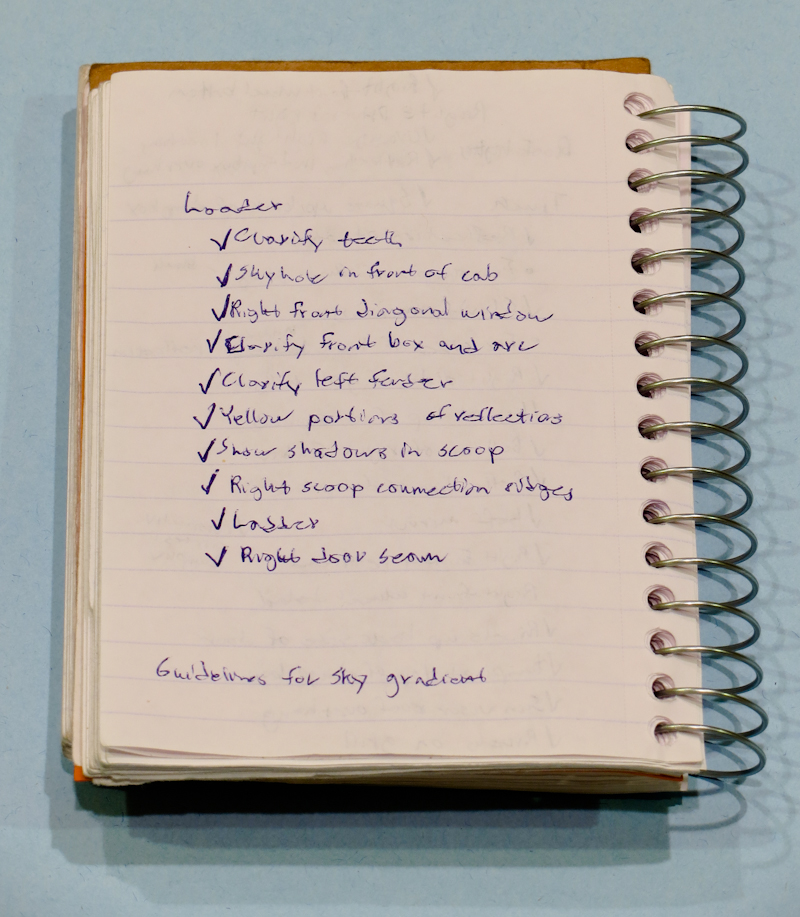 Loader
✓ Clarify teeth
✓ Sky hole in front of cab
✓ Right front diagonal window
✓ Clarify front box and arc
✓ Clarify left fender
✓ Yellow portions of reflections
✓ Show shadows in scoop
✓ Right scoop connection edges
✓ Ladder
✓ Right door seam
Guidelines for sky gradient